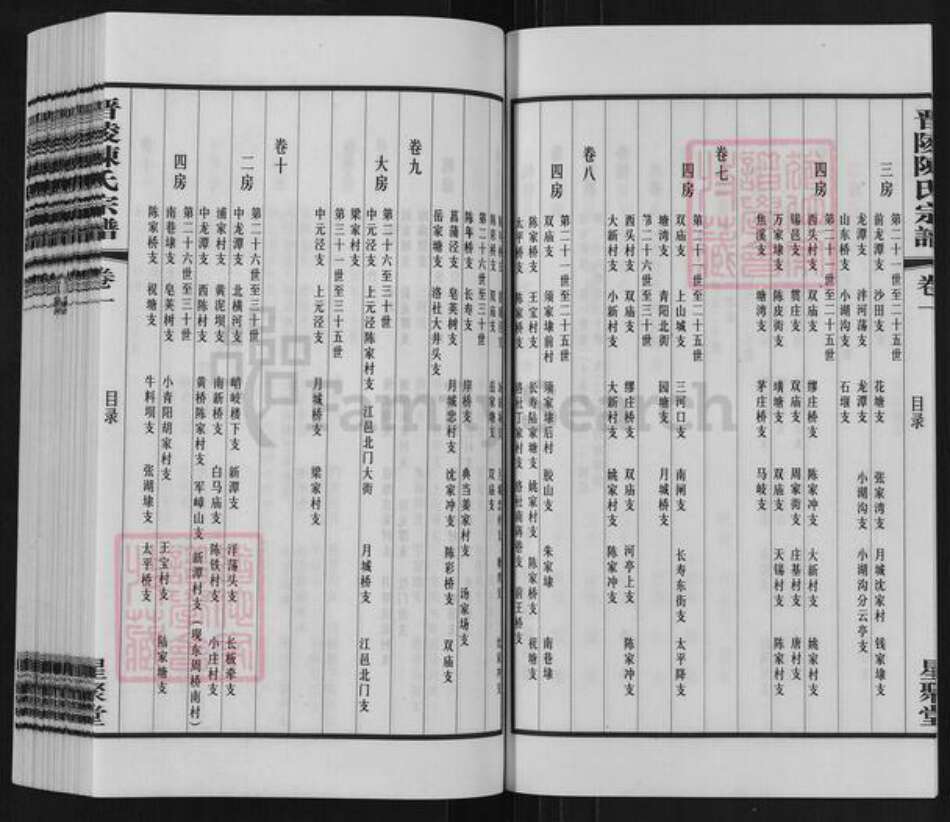 晋陵陳氏宗譜
卷一
目录
星聚堂
三房
第二十一世至二十五世
前龙潭支 沙田支 花塘支 张家湾支 月城沈家村 钱家埭支
龙潭支 泮河荡支 龙潭支 小湖沟支 小湖沟分云亭支
山东桥支 小湖沟支 石堰支
四房
第二十一世至二十五世
西头村支 双庙支 缪庄桥支 陈家冲支 大新村支 姚家村支
锡邑支 霓庄支 双庙支 周家街支 庄基村支 唐村支
万家埭支 陈皮街支 璜塘支 双庙支 天锡村支 陈家村支
焦溪支 塘湾支 茅庄桥支 马岐支
卷七
四房
第二十一世至二十五世
双庙支 上山城支 三河口支 南闸支 长寿东街支 太平降支
塘湾支 青阳北街 园塘支 月城桥支
第二十六世至三十世
西头村支 双庙支 缪庄桥支 双庙支 河亭上支 陈家冲支
大新村支 小新村支 大新村支 姚家村支 陈家冲支
卷八
四房
第二十一世至二十五世
双庙支 须家埭前村 须家埭后村 胶山支 朱家埭 南巷埭
陈家桥支 王宝村支 长寿陆家塘支 姚家村支 陈家桥支 祝塘支
太平桥支
第二十六世至三十世
陈年桥支 长寿支 岸桥支 典当姜家村支 汤家场支
菖蒲泾支 皂荚树支 月城忠村支 沈家冲支 陈彩桥支 双庙支
岳家塘支 洛社大井头支
卷九
大房
第二十六至三十世
中元泾支 上元泾陈家村支 江邑北门大街 月城桥支 江邑北门支
梁家村支
第三十一世至三十五世
中元泾支 上元泾支 月城桥支 梁家村支
卷十
二房
第二十六世至三十世
中龙潭支 北横河支 峭岐楼下支 新潭支 洋荡头支 长板牵支
浦家村支 黄泥坝支 南新桥支 白马庙支 陈铁村支 小庄村支
中龙潭支 西陈村支 黄桥陈家村支 军嶂山支 新潭村支（现东周桥南村）
四房
第二十六世至三十世
南巷埭支 皂荚树支 小青阳胡家村支 王宝村支 陆家塘支
陈家桥支 祝塘支 牛料坝支 张湖埭支 太平桥支
晋陵陳氏宗譜
卷一
目录
星聚堂